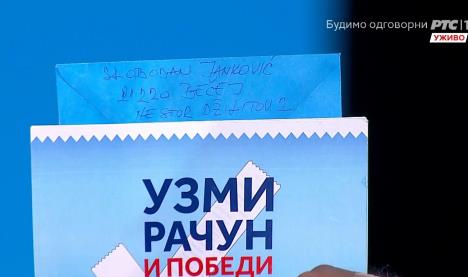 Будимо одговорни
РТС 1
УЖИВО
SLOBODAN JANKOVIĆ
21220 BEČEJ
NESTOR 2
УЗМИ
РАЧУН
И ПОБЕДИ